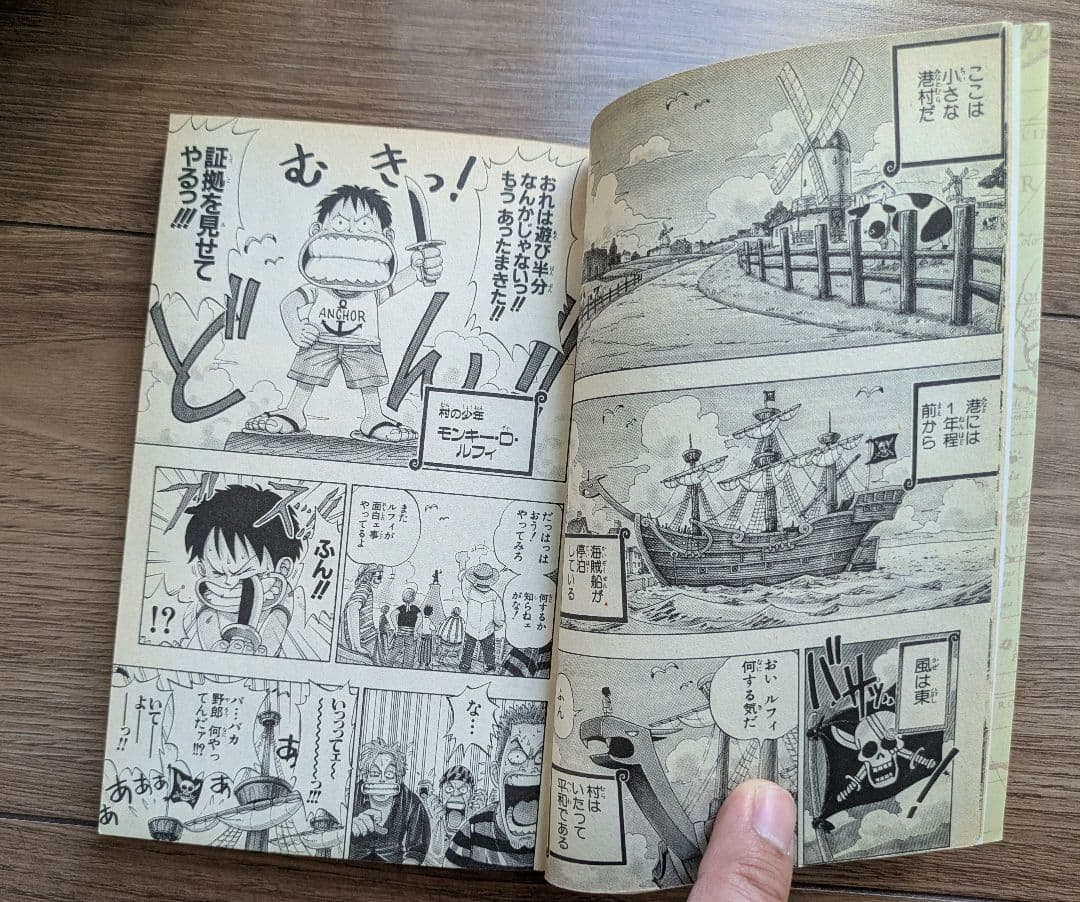 ここは
小さな
港村だ
港には
1年程
前から
海賊船が
停泊
している
風は東
バサッ
おい ルフィ
何する気だ
ふん
村は
いたって
平和である
おれは遊び半分
なんかじゃないっ!!
もう あったまきた!!
むきっ!
証拠を見せて
やるっ!!!
ANCHOR
どんっ!!
村の少年
モンキー・D・
ルフィ
だっはっは
おう!
やってみろ
何するか
知らねェ
がな!
また
ルフィが
面白ェ事
やってるよ
ふん!!
ズズッ
!?
な…
いっってェ〜
〜っ!!!
バ…バカ
野郎 何やっ
てんだァ!!?
いてー
よー
ーっ!!
あ
あああ
あ